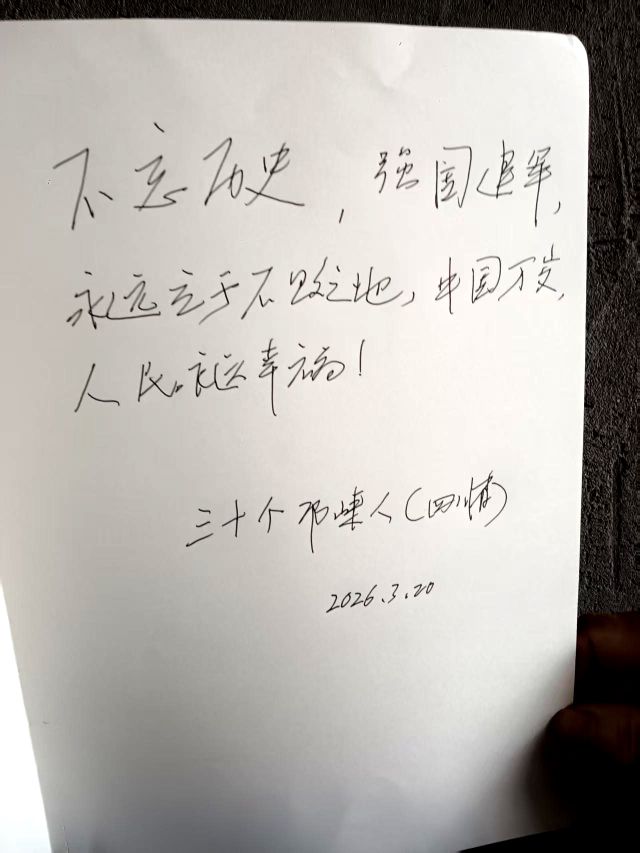 不忘历史，强国建军，
永远立于不败之地，中国万岁，
人民永远幸福！
三十个邛崃人（四川）
2026.3.20